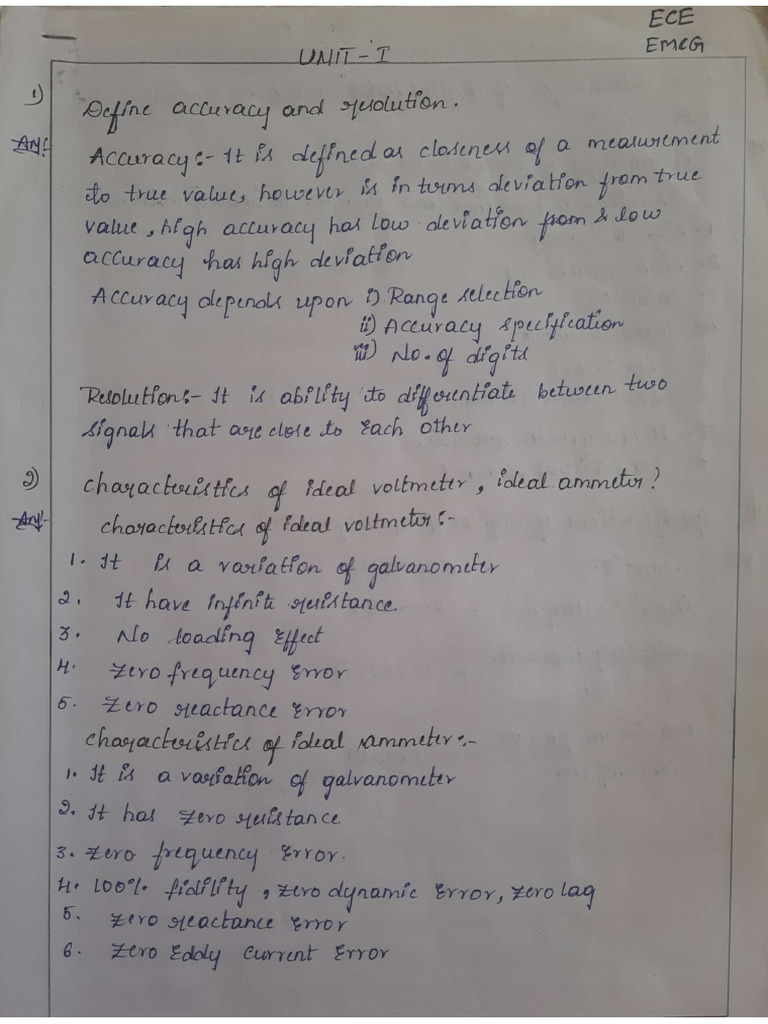 ECE
EMCG
UNIT-I
1) Define accuracy and resolution.
Ans:- Accuracy:- It is defined as closeness of a measurement
to true value, however is in terms deviation from true
value, high accuracy has low deviation from & low
accuracy has high deviation
Accuracy depends upon i) Range selection
ii) Accuracy specification
iii) No. of digits
Resolution:- It is ability to differentiate between two
signals that are close to each other
2) characteristics of ideal voltmeter, ideal ammeter?
Ans:- characteristics of ideal voltmeter:-
1. It is a variation of galvanometer
2. It have infinite resistance.
3. No loading Effect
4. Zero frequency Error
5. Zero reactance Error
characteristics of ideal ammeter:-
1. It is a variation of galvanometer
2. It has zero resistance
3. Zero frequency Error.
4. 100% fidility, zero dynamic Error, zero lag
5. Zero reactance Error
6. Zero Eddy current Error